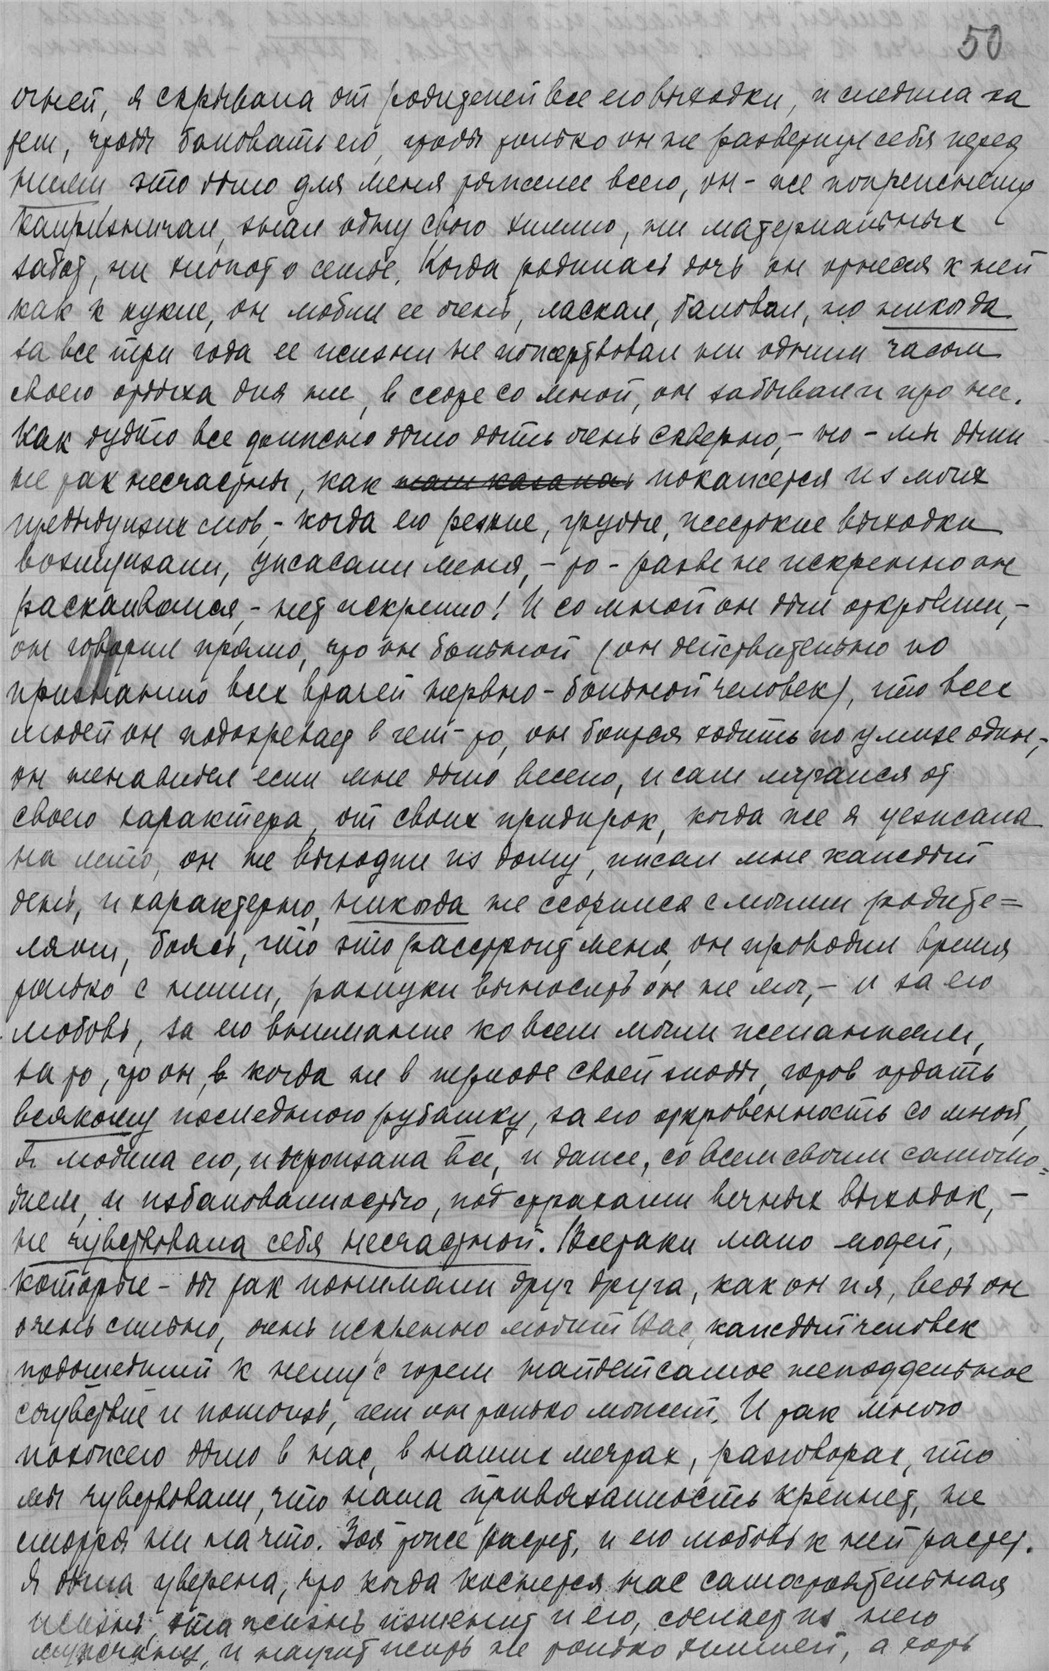 50
огней, я скрывала от родителей все его выходки, и следила за
тем, чтобы баловать его, чтобы только он не развернул себя перед
ними это было для меня тяжелее всего, он-же попрежнему
капризничал, знал одну свою химию, ни материальных
забот, ни хлопот о семье. Когда родилась дочь он отнесся к ней
как к кукле, он любил ее очень, ласкал, баловал, но никогда
за все три года ее жизни не пожертвовал ни одним часом
своего отдыха для нее, в ссоре со мной, он забывал и про нее.
Как будто все должно было быть очень скверно, - но - мы были
не так несчастны, как покажется из моих
предыдущих слов, - когда его резкие, грубые, жестокие выходки
возмущали, ужасали меня, - то - разве не искренно он
раскаивался, - нет искренно! И со мной он был откровенен, -
он говорил прямо, что он больной (он действительно по
признанию всех врачей нервно-больной человек), что всех
людей он подозревает в чем-то, он боится ходить по улице один, -
он ненавидел если мне было весело, и сам мучался от
своего характера, от своих придирок, когда же я уезжала
на лето, он не выходил из дому, писал мне каждый
день, и характерно, никогда не ссорился с моими родите=
лями, боясь, что это расстроит меня, он проводил время
только с ними, разлуки выносить он не мог, - и за его
любовь, за его внимание ко всем моим желаниям,
за то, что он, когда не в периоде своей злобы, готов отдать
всякому последнюю рубашку, за его откровенность со мной,
я любила его, и прощала все, и даже, со всем своим самолю=
бием, и избалованностью, под страхами вечных выходок, -
не чувствовала себя несчастной. Всетаки мало людей,
которые-бы так понимали друг друга, как он и я, ведь он
очень сильно, очень искренно любит Вас, каждый человек
подошедший к нему с горем найдет самое неподдельное
сочувствие и помощь, чем он только может. И так много
похожего было в нас, в наших мечтах, разговорах, что
мы чувствовали, что наша привязанность крепнет, не
смотря ни на что. Зоя тоже растет, и его любовь к ней растет.
Я была уверена, что когда коснется нас самостоятельная
жизнь, эта жизнь изменит и его, сделает из него
мужчину, и научит жить не только химией, а хоть